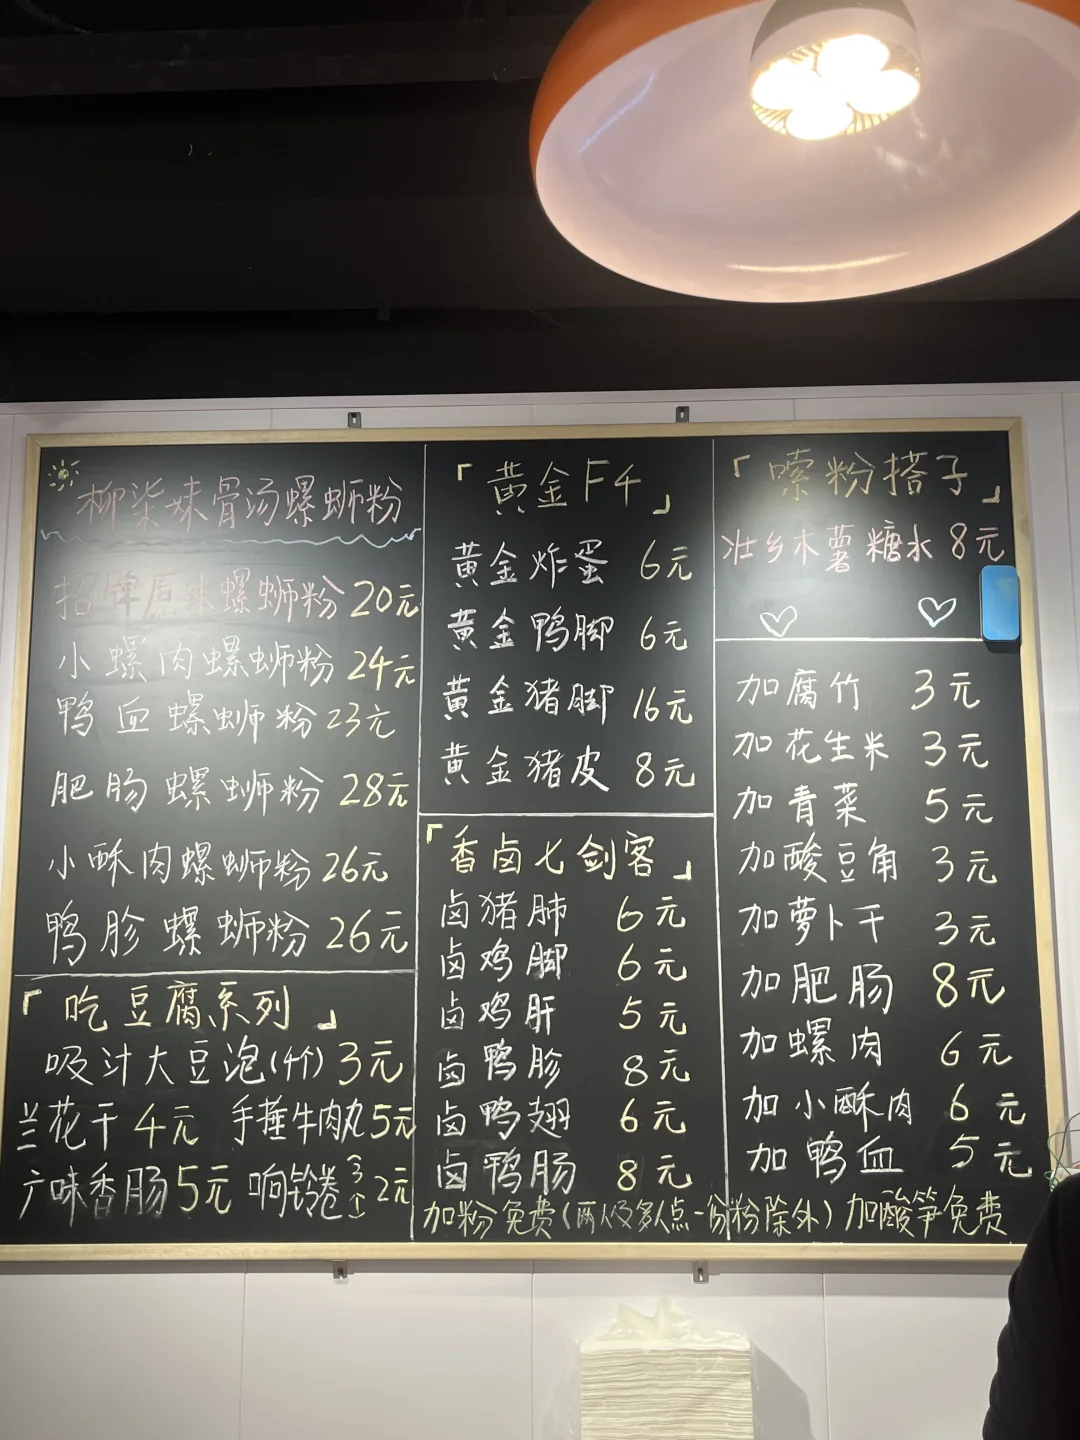 柳柒妹骨汤螺蛳粉
招牌原味螺蛳粉 20元
小螺肉螺蛳粉 24元
鸭血螺蛳粉 23元
肥肠螺蛳粉 28元
小酥肉螺蛳粉 26元
鸭胗螺蛳粉 26元
「吃豆腐系列」
吸汁大豆泡(4个) 3元
兰花干 4元 手捶牛肉丸 5元
广味香肠 5元 响铃卷3个 2元
「黄金F4」
黄金炸蛋 6元
黄金鸭脚 6元
黄金猪脚 16元
黄金猪皮 8元
「香卤七剑客」
卤猪肺 6元
卤鸡脚 6元
卤鸡肝 5元
卤鸭胗 8元
卤鸭翅 6元
卤鸭肠 8元
「嗦粉搭子」
壮乡木薯糖水 8元
加腐竹 3元
加花生米 3元
加青菜 5元
加酸豆角 3元
加萝卜干 3元
加肥肠 8元
加螺肉 6元
加小酥肉 6元
加鸭血 5元
加粉免费(两人及多人点一份粉除外) 加酸笋免费